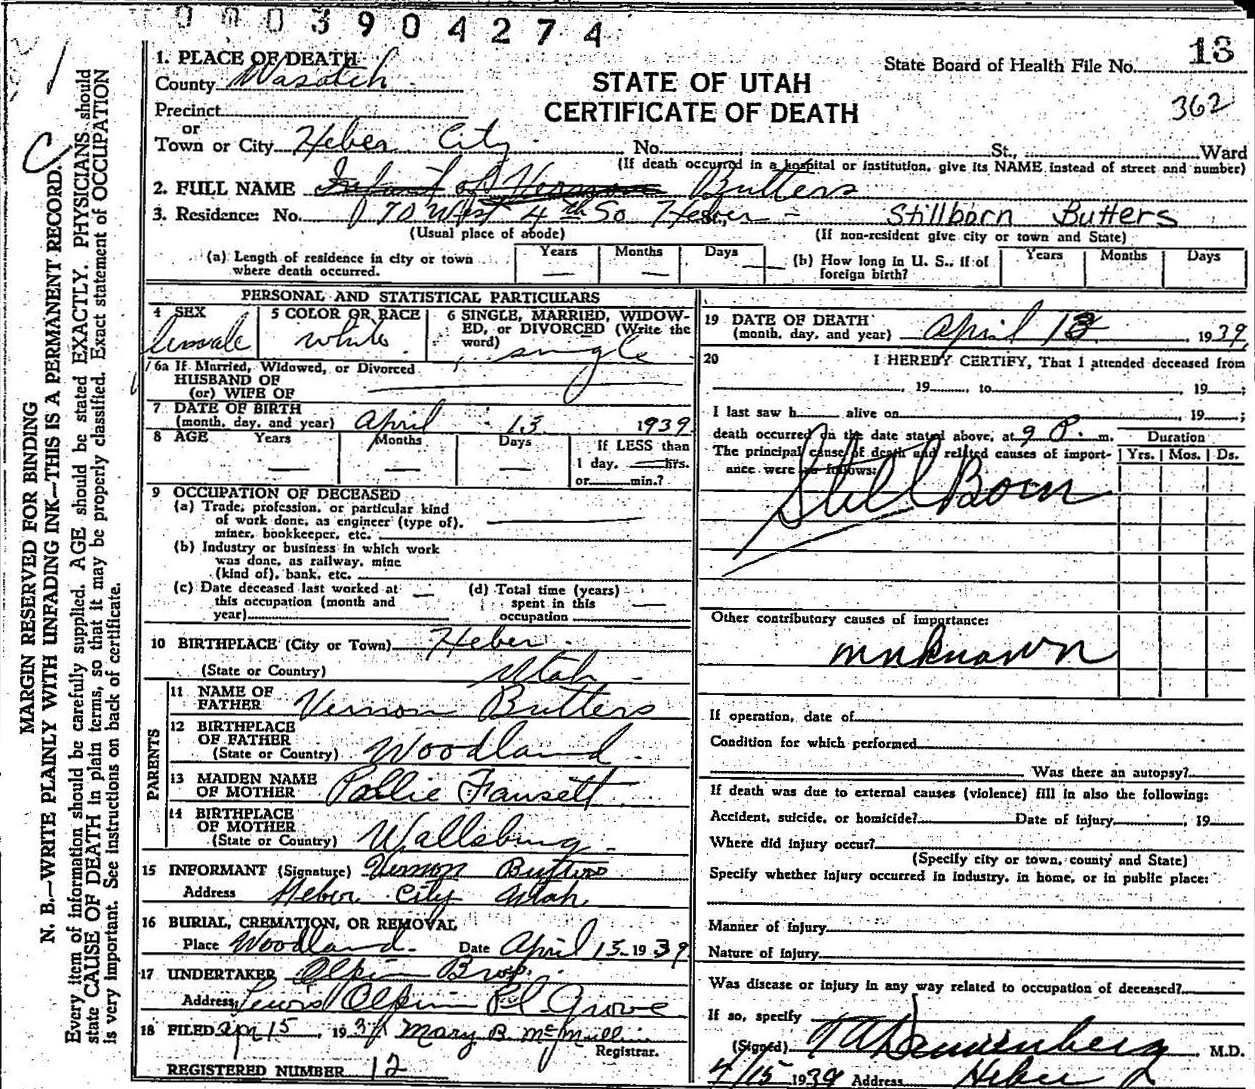 0003904274
1. PLACE OF DEATH
County Wasatch
Precinct
or
Town or City Heber City No. St., Ward
(If death occurred in a hospital or institution, give its NAME instead of street and number)
STATE OF UTAH
CERTIFICATE OF DEATH
State Board of Health File No. 13
362
2. FULL NAME Infant of Vernon Butters
3. Residence: No. 170 West 4th So Heber - Stillborn Butters
(Usual place of abode) (If non-resident give city or town and State)
(a) Length of residence in city or town where death occurred. Years — Months — Days —
(b) How long in U. S., if of foreign birth? Years Months Days
PERSONAL AND STATISTICAL PARTICULARS
4 SEX female
5 COLOR OR RACE white
6 SINGLE, MARRIED, WIDOWED, or DIVORCED (Write the word) single
6a If Married, Widowed, or Divorced
HUSBAND OF
(or) WIFE OF
7 DATE OF BIRTH
(month, day, and year) April 13 1939
8 AGE Years — Months — Days — If LESS than
1 day, hrs.
or min.?
9 OCCUPATION OF DECEASED
(a) Trade, profession, or particular kind
of work done, as engineer (type of),
miner, bookkeeper, etc.
(b) Industry or business in which work
was done, as railway, mine
(kind of), bank, etc.
(c) Date deceased last worked at —
this occupation (month and
year)
(d) Total time (years)
spent in this —
occupation
10 BIRTHPLACE (City or Town) Heber
(State or Country) Utah
PARENTS
11 NAME OF FATHER Vernon Butters
12 BIRTHPLACE OF FATHER
(State or Country) Woodland
13 MAIDEN NAME OF MOTHER Pallie Fausett
14 BIRTHPLACE OF MOTHER
(State or Country) Wallsburg
15 INFORMANT (Signature) Vernon Butters
Address Heber City Utah
16 BURIAL, CREMATION, OR REMOVAL
Place Woodland Date April 15 1939
17 UNDERTAKER Olpin Bros.
Address Lewis Olpin Pl Grove
18 FILED Apr 15, 1939 Mary B. McMullin
Registrar.
REGISTERED NUMBER 12
19 DATE OF DEATH
(month, day, and year) April 13 1939
20 I HEREBY CERTIFY, That I attended deceased from
, 19 , to 19 ;
I last saw h alive on 19 ;
death occurred on the date stated above, at 9 P. m.
The principal cause of death and related causes of import-
ance were as follows:
Duration
Yrs. Mos. Ds.
Still Born
Other contributory causes of importance:
unknown
If operation, date of
Condition for which performed
Was there an autopsy?
If death was due to external causes (violence) fill in also the following:
Accident, suicide, or homicide? Date of injury , 19
Where did injury occur?
(Specify city or town, county and State)
Specify whether injury occurred in industry, in home, or in public place:
Manner of injury
Nature of injury
Was disease or injury in any way related to occupation of deceased?
If so, specify
(Signed) M.D.
4/15 1939 Address Heber
MARGIN RESERVED FOR BINDING
N. B.—WRITE PLAINLY WITH UNFADING INK—THIS IS A PERMANENT RECORD.
Every item of information should be carefully supplied. AGE should be stated EXACTLY. PHYSICIANS should
state CAUSE OF DEATH in plain terms, so that it may be properly classified. Exact statement of OCCUPATION
is very important. See instructions on back of certificate.